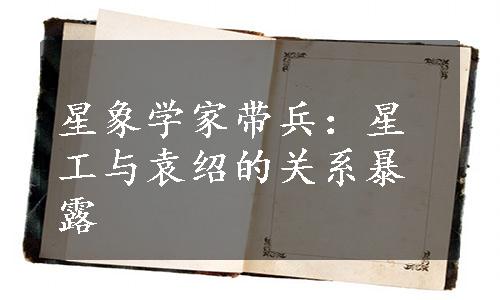 星象学家带兵：星
工与袁绍的关系暴
露